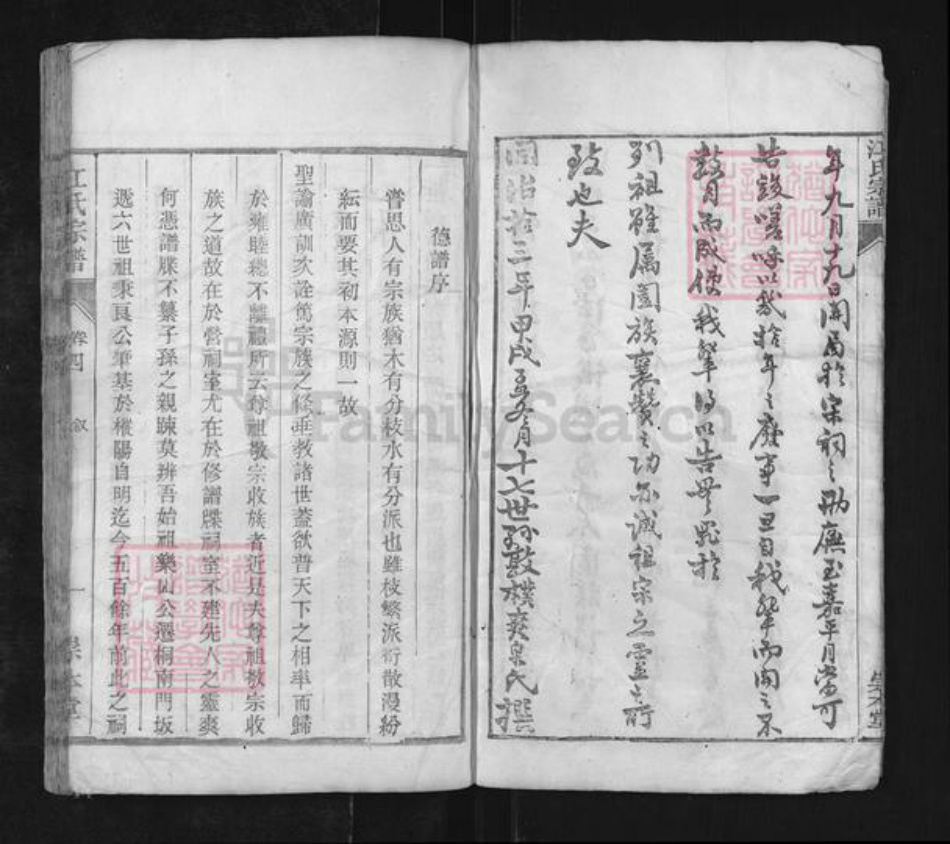 汪氏宗譜
年九月十九日開局於宗祠之西廡至嘉平月當可
告竣嗟呼以數拾年之廢事一旦自我輩而開之不
數月而成使我輩得以告無罪於
列祖雖属闔族襄贊之功亦誠祖宗之靈之所
致也夫
同治拾三年甲戌 月十七世孫敦樸爽泉氏撰
德譜序
嘗思人有宗族猶木有分枝水有分派也雖枝繁派衍散漫紛
紜而要其初本源則一故
聖諭廣訓次詮篤宗族之條垂教諸世蓋欲普天下之相率而歸
於雍睦總不離禮所云尊祖敬宗收族者近是夫尊祖敬宗收
族之道故在於營祠室尤在於修譜牒祠室不建先人之靈爽
何憑譜牒不纂子孫之親踈莫辨吾始祖樂山公遷桐南門坂
遞六世祖秉良公肇基於樅陽自明迄今五百餘年前此之祠
江氏宗譜
卷四
敘
一
崇本堂
FamilySearch